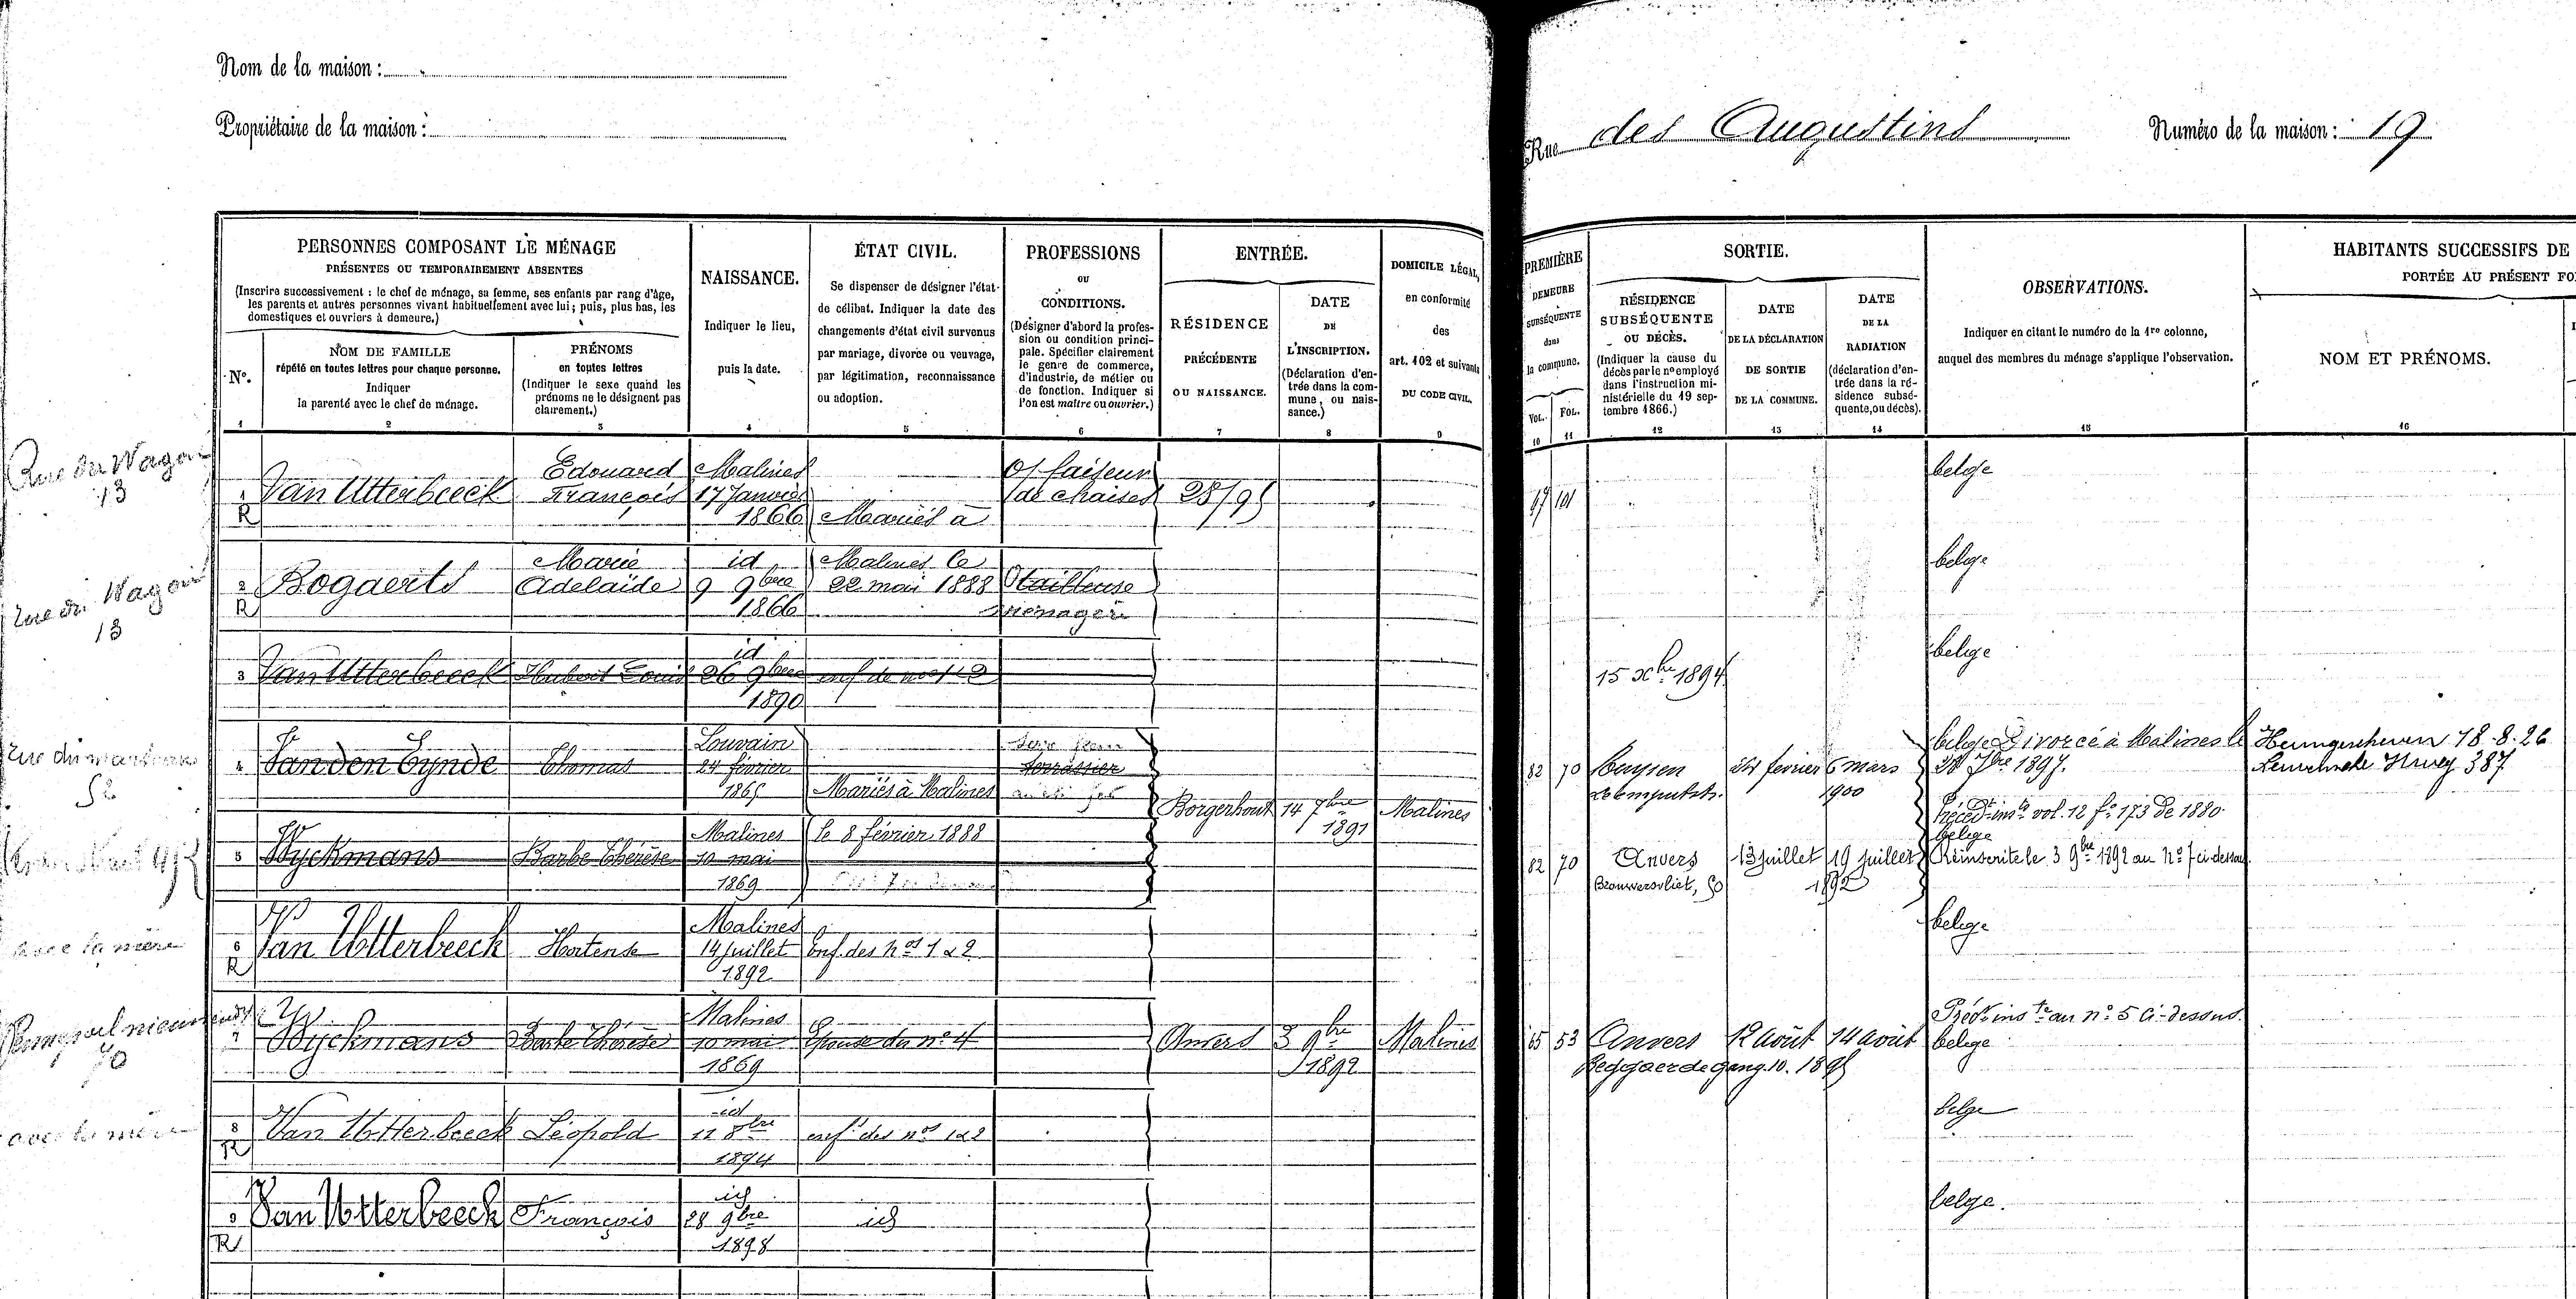 Nom de la maison :
Propriétaire de la maison :
Rue des Augustins
Numéro de la maison : 19
PERSONNES COMPOSANT LE MÉNAGE
PRÉSENTES OU TEMPORAIREMENT ABSENTES
(Inscrire successivement : le chef de ménage, sa femme, ses enfants par rang d'âge,
les parents et autres personnes vivant habituellement avec lui ; puis, plus bas, les
domestiques et ouvriers à demeure.)
No.
1
NOM DE FAMILLE
répété en toutes lettres pour chaque personne.
Indiquer
la parenté avec le chef de ménage.
2
PRÉNOMS
en toutes lettres
(Indiquer le sexe quand les
prénoms ne le désignent pas
clairement.)
3
NAISSANCE.
Indiquer le lieu,
puis la date.
4
ÉTAT CIVIL.
Se dispenser de désigner l'état
de célibat. Indiquer la date des
changements d'état civil survenus
par mariage, divorce ou veuvage,
par légitimation, reconnaissance
ou adoption.
5
PROFESSIONS
OU
CONDITIONS.
(Désigner d'abord la profes-
sion ou condition princi-
pale. Spécifier clairement
le genre de commerce,
d'industrie, de métier ou
de fonction. Indiquer si
l'on est maître ou ouvrier.)
6
ENTRÉE.
RÉSIDENCE
PRÉCÉDENTE
OU NAISSANCE.
7
DATE
DE
L'INSCRIPTION.
(Déclaration d'en-
trée dans la com-
mune, ou nais-
sance.)
8
DOMICILE LÉGAL,
en conformité
des
art. 102 et suivants
DU CODE CIVIL.
9
PREMIÈRE
DEMEURE
SUBSÉQUENTE
dans
la commune.
VOL.
FOL.
10
11
SORTIE.
RÉSIDENCE
SUBSÉQUENTE
OU DÉCÈS.
(Indiquer la cause du
décès par le no employé
dans l'instruction mi-
nistérielle du 19 sep-
tembre 1866.)
12
DATE
DE LA DÉCLARATION
DE SORTIE
DE LA COMMUNE.
13
DATE
DE LA
RADIATION
(déclaration d'en-
trée dans la ré-
sidence subsé-
quente, ou décès).
14
OBSERVATIONS.
Indiquer en citant le numéro de la 1re colonne,
auquel des membres du ménage s'applique l'observation.
15
HABITANTS SUCCESSIFS DE
PORTÉE AU PRÉSENT FO
NOM ET PRÉNOMS.
16
Rue du Wagon
13
1 Van Utterbeeck
R
Edouard
François
Malines
17 Janvier
1866
Mariés à
faiseur
de chaises
28/95
belge
Rue du Wagon
13
2 Bogaerts
R
Marie
Adelaide
id
9 9bre
1866
Malines le
22 mai 1888
tailleuse
ménagère
belge
3 Van Utterbeeck
Hubert Louis
id
26 9bre
1890
15 Xbre 1894
belge
4 Van den Eynde
Thomas
Louvain
24 février
1865
Mariés à Malines
terrassier
82 70
février
6 mars
1900
belge Divorcé à Malines le
28 7bre 1897.
18.8.26
387
5 Wyckmans
Barbe Thérèse
Malines
10 mai
1869
le 8 février 1888
Borgerhout
14 7bre
1891
Malines
82 70
Anvers
Brouwersvliet,
13 juillet
19 juillet
1892
vol. 12 fo 173 de 1880
belge
Réinscrite le 3 9bre 1892 au no 7 ci-dessous
avec la mère
6 Van Utterbeeck
R
Hortense
Malines
14 juillet
1892
Enf. des nos 1 & 2
belge
70
7 Wyckmans
Barbe Thérèse
Malines
10 mai
1869
Epouse du no 4
Anvers
3 9bre
1892
Malines
65 53
Anvers
12 août
14 août
Précte inste au no 5 ci-dessus.
belge
avec la mère
8 Van Utterbeeck
R
Léopold
id
8bre
1894
enft des nos 1 & 2
belge
9 Van Utterbeeck
R
François
id
28 9bre
1898
id
belge.